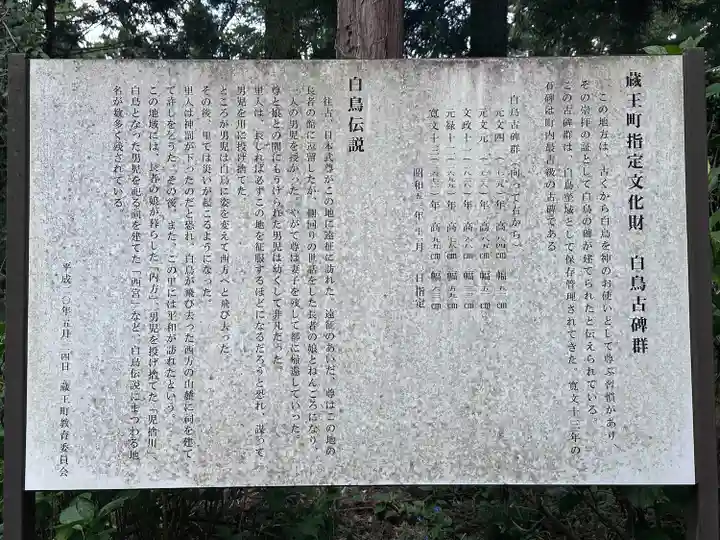 蔵王町指定文化財 白鳥古碑群
この地方は、古くから白鳥を神のお使いとして尊ぶ習慣があり
その崇拝の証として白鳥の碑が建てられたと伝えられている。
この古碑群は、白鳥塋域として保存管理されてきた。寛文十三年の
石碑は町内最古級の古碑である
白鳥古碑群(向って右から)
元文四
元文元
文政十
元禄十
寛文十三
指定
白鳥伝説
往古、日本武尊がこの地に遠征に訪れた。遠征のあいだ、尊はこの地の
長者の館に逗留したが、身回りの世話をした長者の娘とねんごろになり、
一人の男児を授かった。やがて尊は妻子を残して都に帰還していった。
尊と娘との間にもうけられた男児は幼くして非凡だった。
里人は、長じれば必ずこの地を征服するほどになるだろうと恐れ、謀って
男児を川に投げ捨てた
ところが男児は白鳥に姿を変えて西方へと飛び去った
その後、里では災いが起こるようになった。
里人は神罰が下ったのだと恐れ、白鳥が飛び去った西方の山麓に祠を建て
て許しをこうた。その後、また、この里には平和が訪れたという。
この地域には、長者の娘が暮らした「内方」、男児を投げ捨てた「児捨川」、
白鳥となった男児を祀る祠を建てた「西宮」など、白鳥伝説にまつわる地
名が数多く残されている。
蔵王町教育委員会